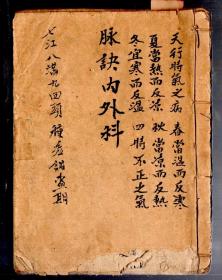 天行時氣之病 春當溫而反寒
夏當熱而反凉 秋當凉而反熱
冬宜寒而反溫 四時不正之氣
脉訣內外科
七江八滿九回頭